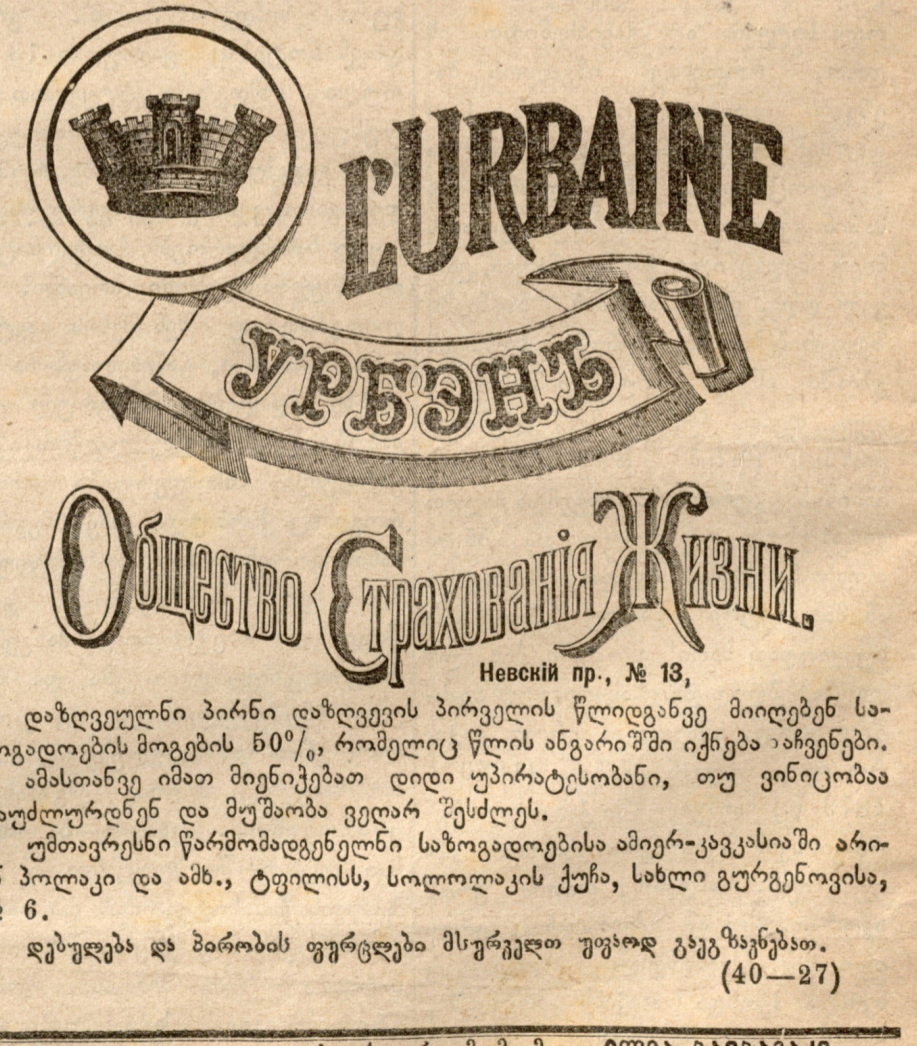 L'URBAINE
УРБЭНЪ
Общество Страхованія Жизни.
Невскій пр., № 13,
დაზღვეულნი პირნი დაზღვევის პირველის წლიდგანვე მიიღებენ სა-
ოგადოების მოგების 50%, რომელიც წლის ანგარიშში იქნება აჩვენები.
ამასთანვე იმათ მიენიჭებათ დიდი უპირატესობანი, თუ ვინიცობაა
აუძლურდნენ და მუშაობა ვეღარ შესძლეს.
უმთავრესნი წარმომადგენელნი საზოგადოებისა ამიერ-კავკასიაში არი-
ნ პოლაკი და ამხ., ტფილისს, სოლოლაკის ქუჩა, სახლი გურგენოვისა,
№ 6.
დებულება და პირობის ფურცლები მსურველთ უფაოდ გაეგზავნებათ.
(40—27)